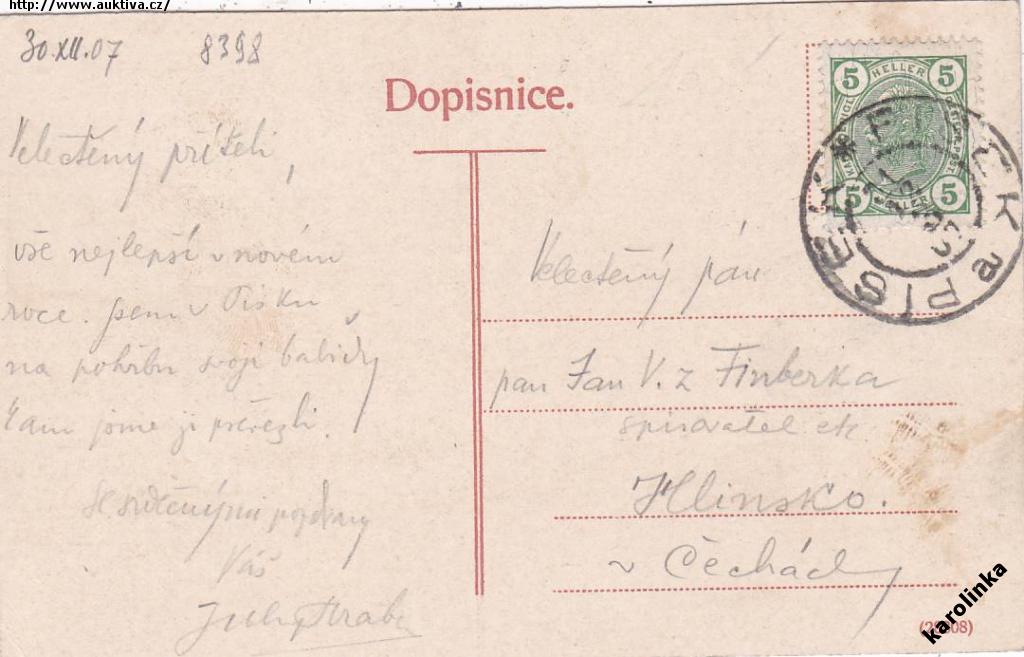 http://www.auktiva.cz/
30.XII.07 8398
Dopisnice.
Velectěný příteli,
vše nejlepší v novém
roce. Jsem v Písku
na pohřbu svojí babičky
kam jsme ji převezli.
Se srdečnými pozdravy
Váš
5 HELLER 5
5 HELLER 5
PÍSEK PISEK a
Velectěný pán
pan Jan V. z Finberka
spisovatel etc.
Hlinsko.
v Čechách
karolinka